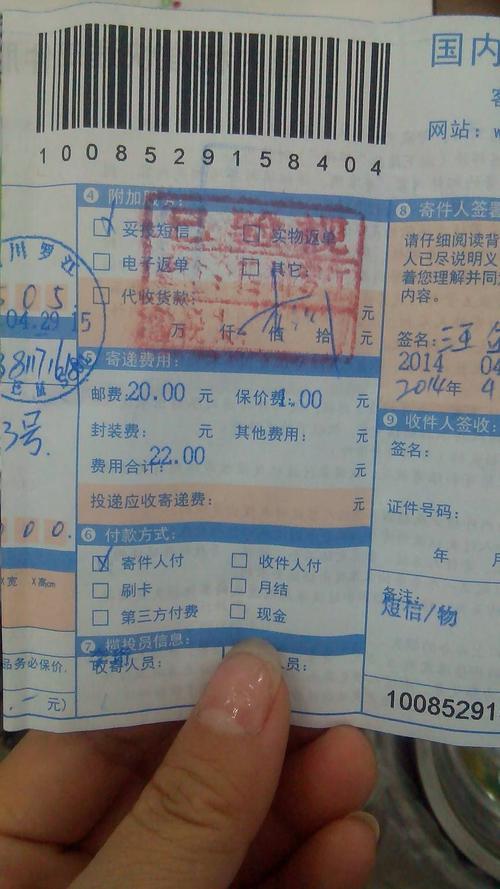 国内
网站：w
1008529158404
川 罗 江
05
04.29 15
3号.
00.
X宽 X高cm
品务必保价.
元）
④ 附加服务：
妥投短信 实物返单
电子返单 其它：
代收货款： 元
万 仟 佰 拾 元
⑤ 寄递费用：
邮费：20.00 元 保价费：1.00 元
封装费： 元 其他费用： 元
费用合计：22.00 元
投递应收寄递费： 元
⑥ 付款方式：
寄件人付 收件人付
刷卡 月结
第三方付费 现金
⑦ 揽投员信息：
收寄人员： 员：
⑧ 寄件人签署
请仔细阅读背
人已尽说明义
着您理解并同意
内容。
签名：
2014 04
2014年 4
⑨ 收件人签收：
签名：
证件号码：
年 月
备注：
短信/物
10085291